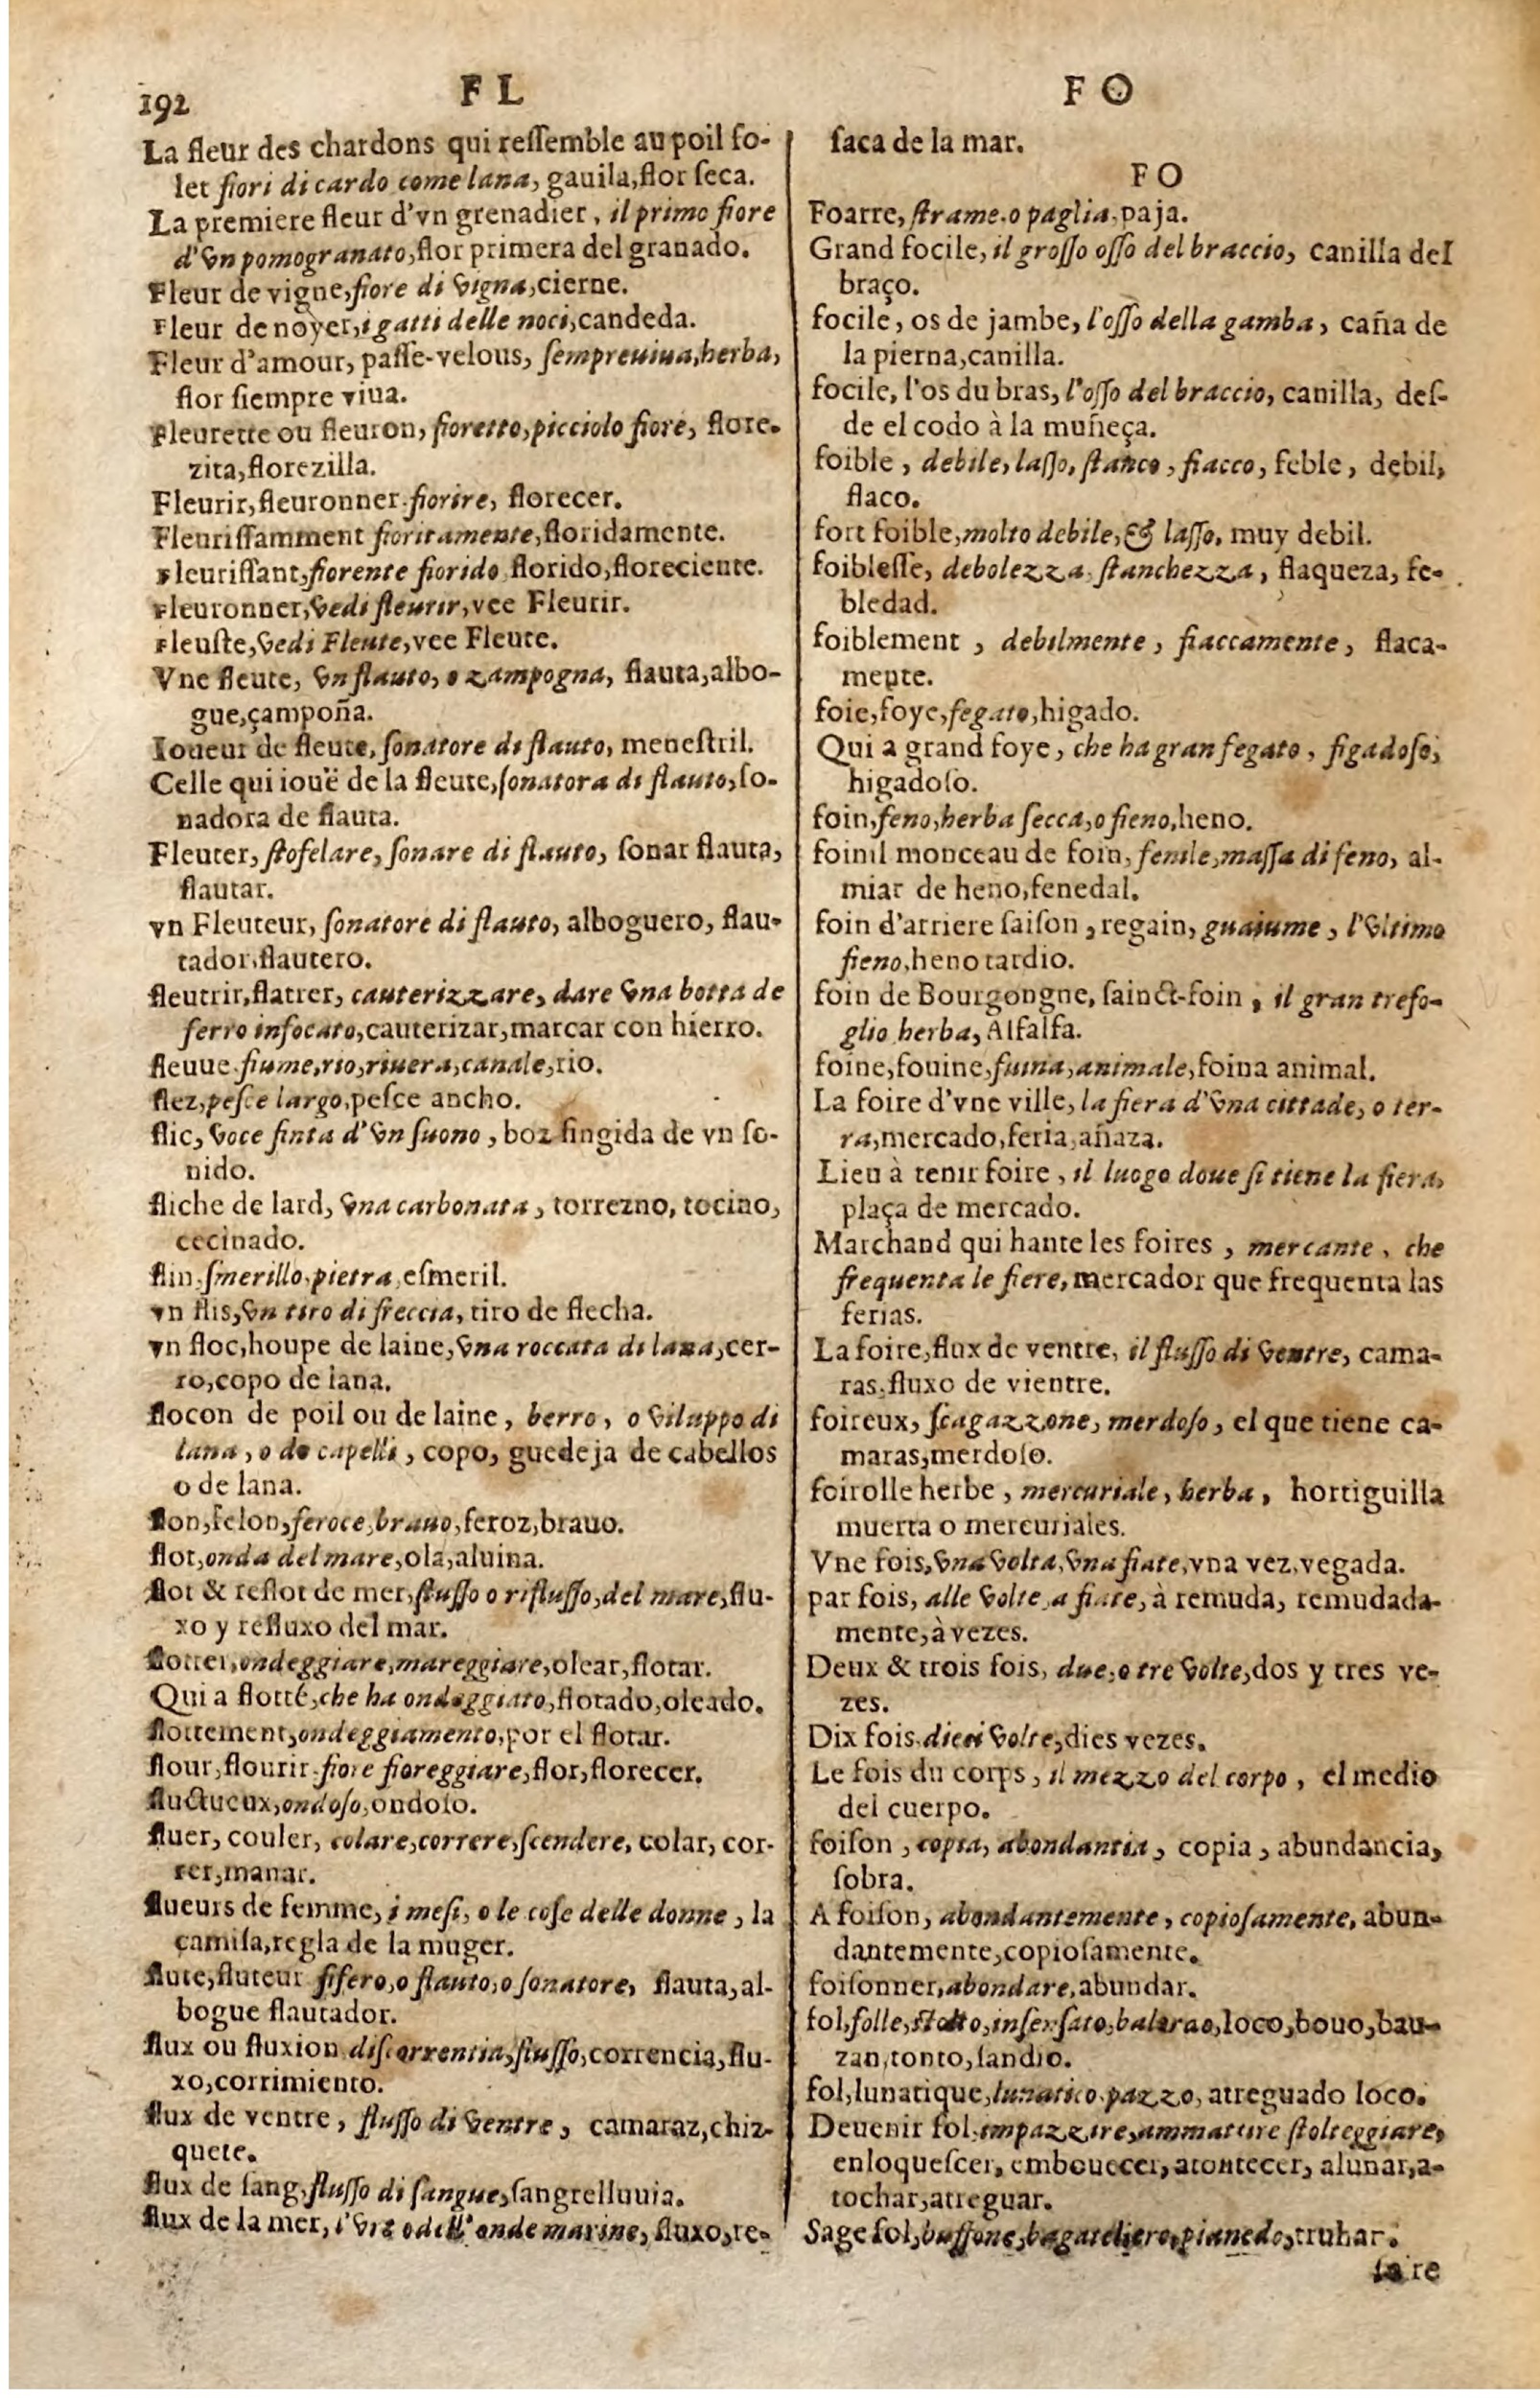 192
F L
La fleur des chardons qui reſſemble au poil fo-
let fiori di cardo come lana, gauila, flor ſeca.
La premiere fleur d'vn grenadier, il primo fiore
d'vn pomogranato, flor primera del granado.
Fleur de vigne, fiore di vigna, cierne.
Fleur de noyer, i gatti delle noci, candeda.
Fleur d'amour, paſſe-velous, ſempreuiua, herba,
flor ſiempre viua.
Fleurette ou fleuron, fioretto, picciolo fiore, flore-
zita, florezilla.
Fleurir, fleuronner. fiorire, florecer.
Fleuriſſamment fioritamente, floridamente.
Fleuriſſant, fiorente fiorido, florido, floreciente.
Fleuronner, vedi fleurir, vee Fleurir.
Fleuſte, vedi Fleute, vee Fleute.
Vne fleute, vn flauto, o zampogna, flauta, albo-
gue, çampoña.
Ioueur de fleute, ſonatore di flauto, meneſtril.
Celle qui iouë de la fleute, ſonatora di flauto, ſo-
nadora de flauta.
Fleuter, ſtofelare, ſonare di flauto, ſonar flauta,
flautar.
vn Fleuteur, ſonatore di flauto, alboguero, flau-
tador, flautero.
fleutrir, flatrer, cauterizzare, dare vna botta de
ferro infocato, cauterizar, marcar con hierro.
fleuue. fiume, rio, riuera, canale, rio.
flez, peſce largo, peſce ancho.
flic, voce finta d'vn ſuono, boz fingida de vn ſo-
nido.
fliche de lard, vna carbonata, torrezno, tocino,
cecinado.
flin. ſmerillo, pietra, eſmeril.
vn flis, vn tiro di freccia, tiro de flecha.
vn floc, houpe de laine, vna roccata di lana, cer-
ro, copo de lana.
flocon de poil ou de laine, berro, o viluppo di
lana, o de capelli, copo, guedeja de cabellos
o de lana.
flon, felon, feroce, brauo, feroz, brauo.
flot, onda del mare, ola, aluina.
flot & reflot de mer, fluſſo o rifluſſo, del mare, flu-
xo y refluxo del mar.
flotter, ondeggiare, mareggiare, olear, flotar.
Qui a flotté, che ha ondeggiato, flotado, oleado.
flottement, ondeggiamento, por el flotar.
flour, flourir. fiore fioreggiare, flor, florecer.
fluctueux, ondoſo, ondoſo.
fluer, couler, colare, correre, ſcendere, colar, cor-
rer, manar.
flueurs de femme, i meſi, o le coſe delle donne, la
camiſa, regla de la muger.
flute, fluteur fifero, o flauto, o ſonatore, flauta, al-
bogue flautador.
flux ou fluxion diſcorrentia, fluſſo, correncia, flu-
xo, corrimiento.
flux de ventre, fluſſo di ventre, camaraz, chiz-
quete.
flux de ſang, fluſſo di ſangue, ſangrelluuia.
flux de la mer, l'vrt o dell' onde marine, fluxo, re-
F O
ſaca de la mar.
F O
Foarre, ſtrame, o paglia, paja.
Grand focile, il groſſo oſſo del braccio, canilla del
braço.
focile, os de jambe, l'oſſo della gamba, caña de
la pierna, canilla.
focile, l'os du bras, l'oſſo del braccio, canilla, deſ-
de el codo à la muñeça.
foible, debile, laſſo, ſtanco, fiacco, feble, debil,
flaco.
fort foible, molto debile, & laſſo, muy debil.
foibleſſe, debolezza, ſtanchezza, flaqueza, fe-
bledad.
foiblement, debilmente, fiaccamente, flaca-
mente.
foie, foye, fegato, higado.
Qui a grand foye, che ha gran fegato, figadoſo,
higadoſo.
foin, feno, herba ſecca, o fieno, heno.
foinil monceau de foin, fenile, maſſa di feno, al-
miar de heno, fenedal.
foin d'arriere ſaiſon, regain, guaiume, l'vltimo
fieno, heno tardio.
foin de Bourgongne, ſainct-foin, il gran trefo-
glio herba, Alfalfa.
foine, fouine, fuina, animale, foina animal.
La foire d'vne ville, la fiera d'vna cittade, o ter-
ra, mercado, feria, añaza.
Lieu à tenir foire, il luogo doue ſi tiene la fiera,
plaça de mercado.
Marchand qui hante les foires, mercante, che
frequenta le fiere, mercador que frequenta las
ferias.
La foire, flux de ventre, il fluſſo di ventre, cama-
ras, fluxo de vientre.
foireux, ſcagazzone, merdoſo, el que tiene ca-
maras, merdoſo.
foirolle herbe, mercuriale, herba, hortiguilla
muerta o mercuriales.
Vne fois, vna volta, vna fiate, vna vez, vegada.
par fois, alle volte, a fiate, à remuda, remudada-
mente, à vezes.
Deux & trois fois, due, o tre volte, dos y tres ve-
zes.
Dix fois, dieci volte, dies vezes.
Le fois du corps, il mezzo del corpo, el medio
del cuerpo.
foiſon, copia, abondantia, copia, abundancia,
ſobra.
A foiſon, abondantemente, copioſamente, abun-
dantemente, copioſamente.
foiſonner, abondare, abundar.
fol, folle, ſtolto, inſenſato, balordo, loco, bouo, bau-
zan, tonto, ſandio.
fol, lunatique, lunatico, pazzo, atreguado loco.
Deuenir fol, impazzire, ammattire ſtolteggiare,
enloqueſcer, embouecer, atontecer, alunar, a-
tochar, atreguar.
Sage fol, buffone, bagateliero, pianedo, truhar.
faire